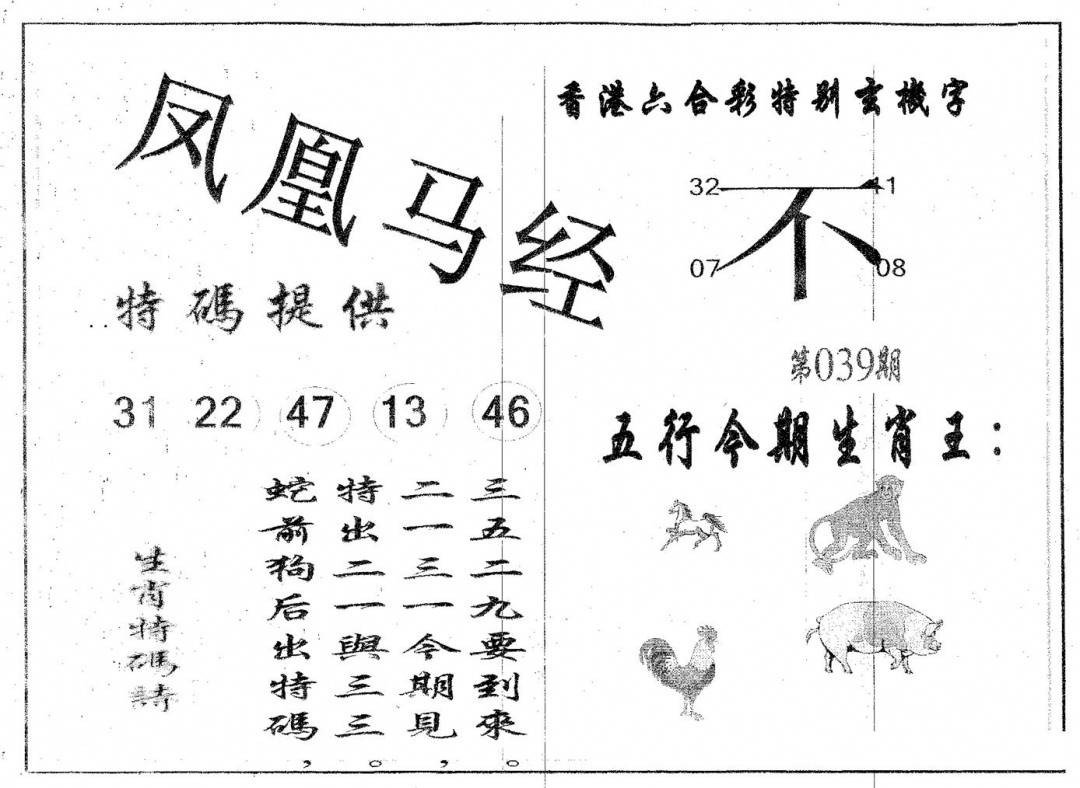 凤凰马经
香港六合彩特别玄機字
32
不
07
08
特碼提供
第039期
31 22 47 13 46
五行今期生肖王：
生肖特碼詩
蛇前狗后出特碼，
特出二一與三三。
二一三一今期見，
三五二九要到來。